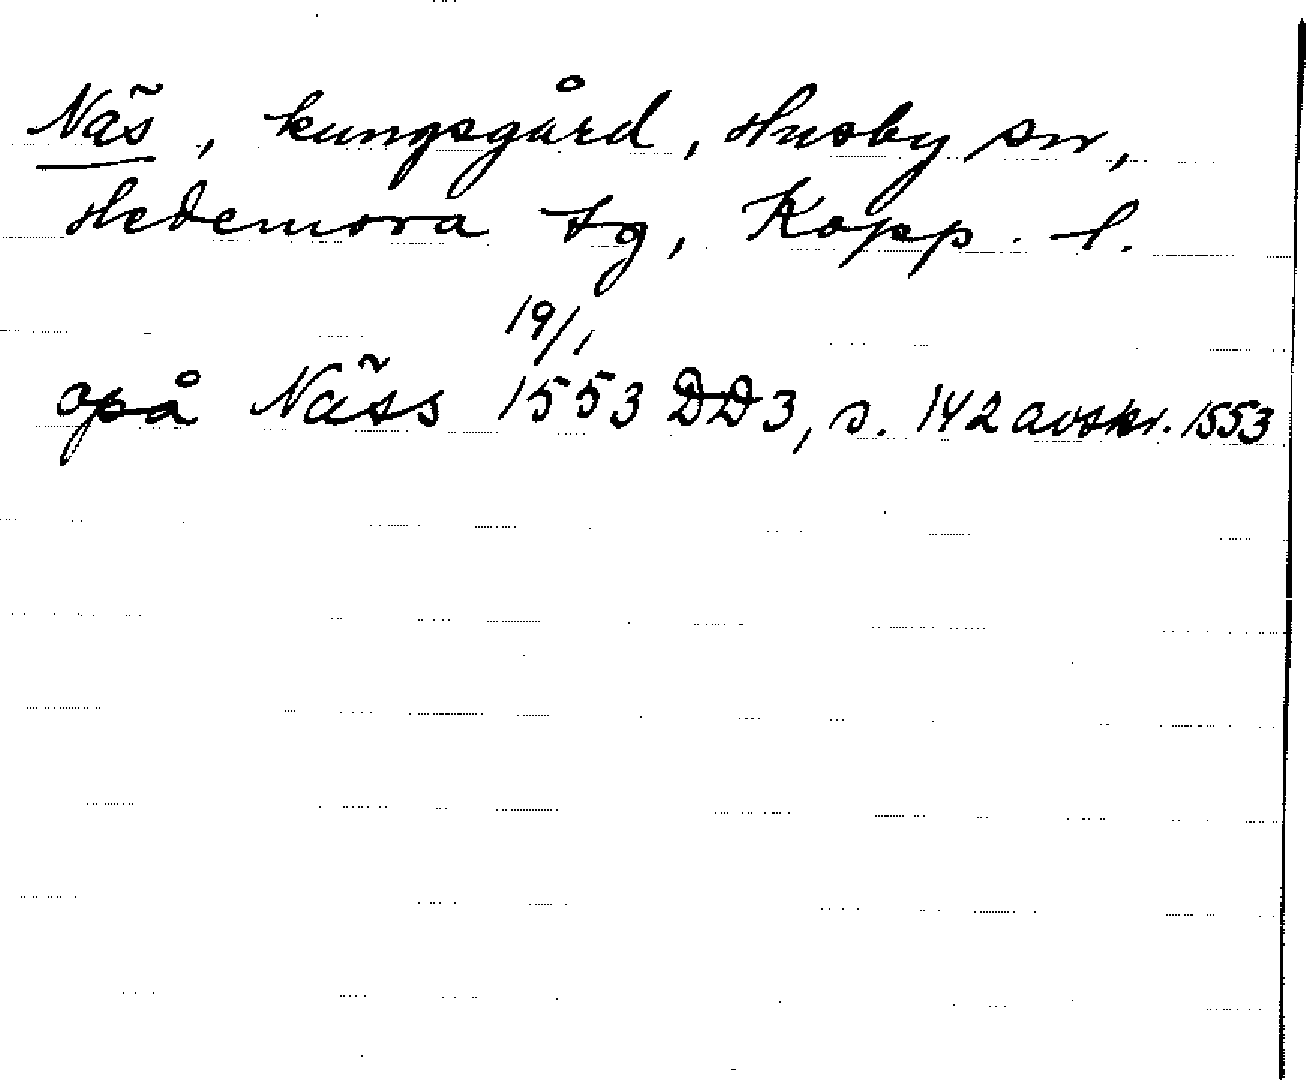 Näs, kungsgård, Husby sn,
Hedemora tg, Kopp. l.
19/1
opå Näss 1553 DD3, s. 142 avskr. 1553